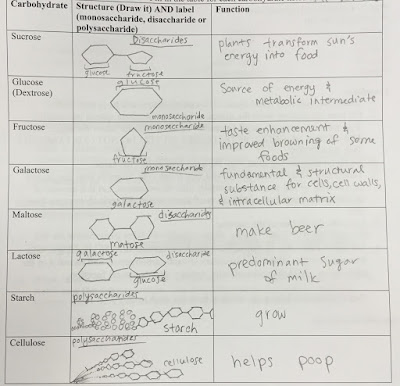 Carbohydrate
Structure (Draw it) AND label
(monosaccharide, disaccharide or
polysaccharide)
Function
Sucrose
Disaccharides
glucose
fructose
plants transform sun's
energy into food
Glucose
(Dextrose)
glucose
monosaccharide
Source of energy &
metabolic intermediate
Fructose
monosaccharide
fructose
taste enhancement &
improved browning of some
foods
Galactose
monosaccharide
galactose
fundamental & structural
substance for cells, cell walls,
& intracellular matrix
Maltose
disaccharides
matose
make beer
Lactose
galactose
disaccharide
glucose
predominant sugar
of milk
Starch
polysaccharides
starch
grow
Cellulose
polysaccharides
cellulose
helps poop